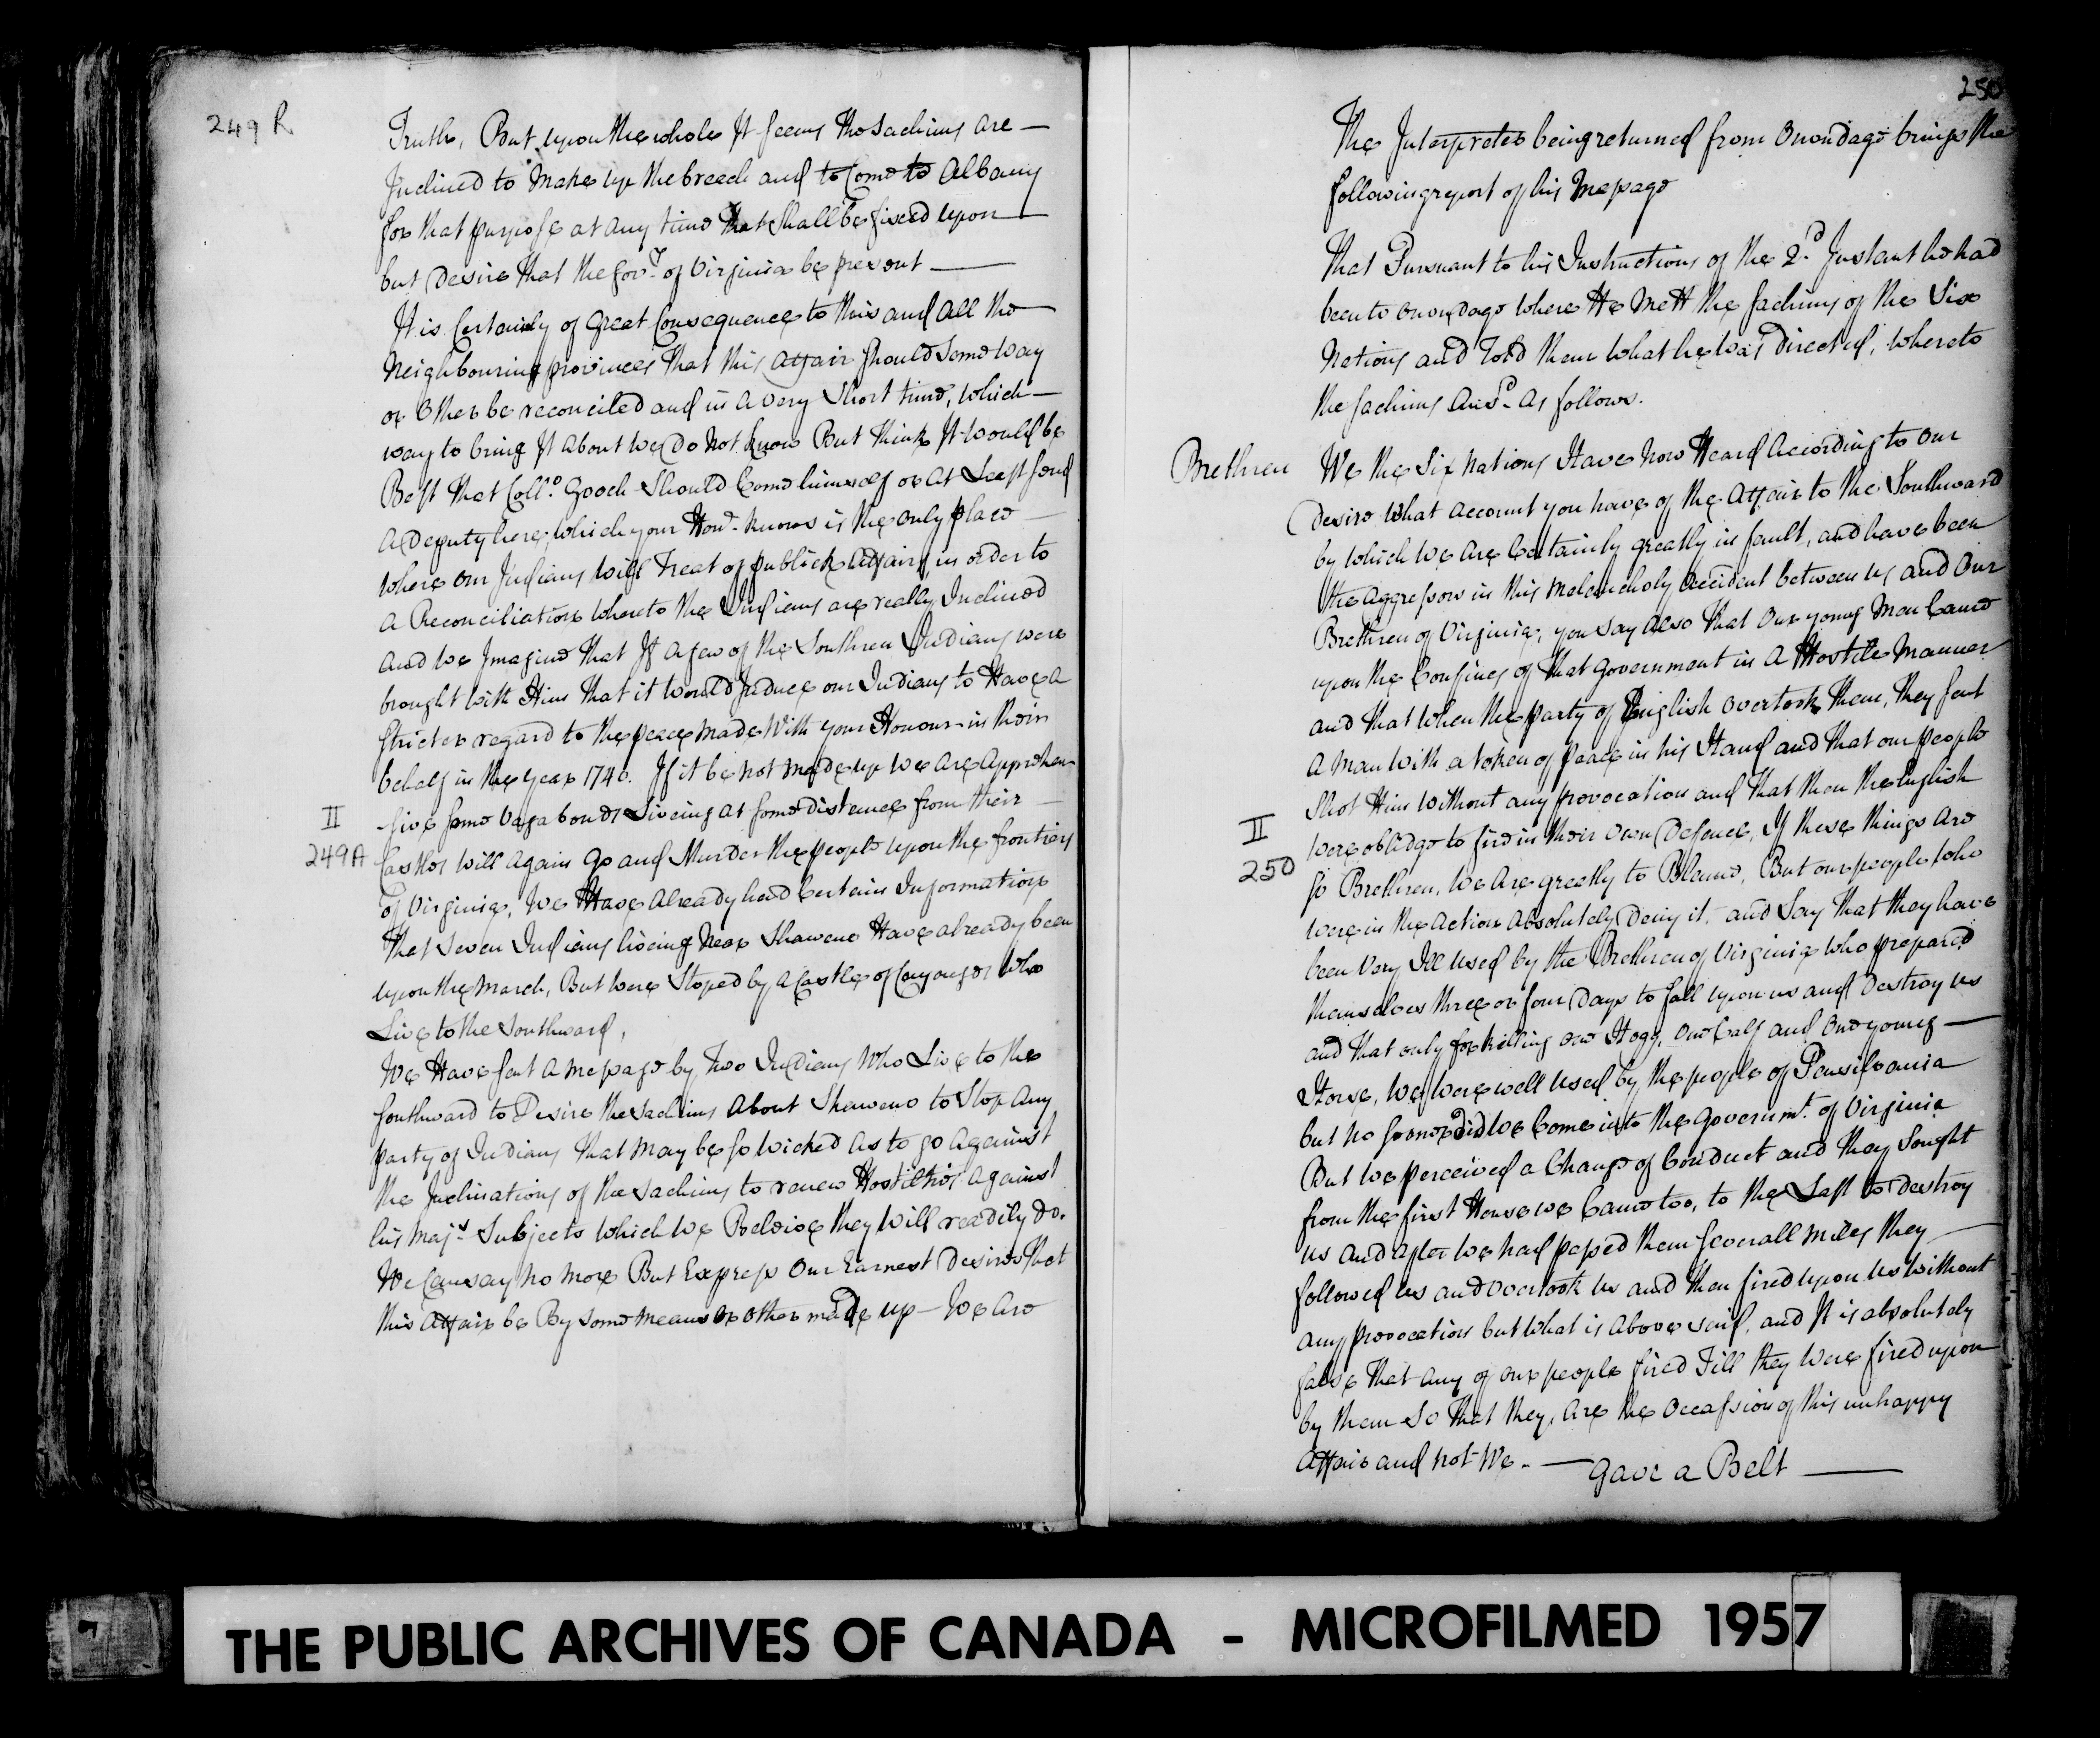 249 R
Truth, But upon the whole It seems the Sachims are —
Inclined to Make up the breach and to Come to Albany
for that purpose at any time that Shall be fixed upon —
but Desire that the Govr. of Virginia be present —
It is Certainly of Great Consequence to this and All the —
Neighbouring provinces that this Affair should Some way
or Other be reconciled and in a very Short time, which —
way to bring It About we do Not know But think It would be
Best that Collo. Gooch Should Come himself or At Least send
A Deputy here, which your Honr. knows is the only place —
where our Indians will treat of publick Affairs in order to
A Reconciliation whereto the Indians are really Inclined
And we Imagine that If a few of the Southren Indians were
brought with Him that it would Induce our Indians to Have a
stricter regard to the peace made With your Honour in their
behalf in the year 1740. If it be not made up we Are Apprehen-
II
-sive some Vagabonds Liveing at some distance from their —
249A
Castles will Again Go and Murder the people upon the frontiers
of Virginia, We Have Already had Certain Information
that Seven Indians liveing Near Shaweno Have already been
upon the March, But were Stoped by a Castle of Cayouges who
Live to the Southward,
We Have sent a Message by Two Indians Who Live to the
Southward to Desire the Sachims About Shaweno to Stop Any
party of Indians that may be so wicked as to go Against
the Inclinations of the Sachims to renew Hostilities Against
his Majts. Subjects which we Beleive they will readily do.
We Can say no more But Express Our Earnest Desires that
this Affair be By some means or other made up — We Are
250
The Interpreter being returned from Onondago brings the
following report of his Message
That Pursuant to his Instructions of the 2d. Instant he had
been to Onondago where He Mett the Sachims of the Six
Nations and Told them what he was Directed, whereto
the Sachims Ansd. As follows.
Brethren We the Six Nations Have now Heard According to our
Desire what account you have of the Affair to the Southward
by which we Are Certainly greatly in fault, and have been
the Aggressors in this Melancholy Accident between us and Our
Brethren of Virginia; you say Also that Our young Men Came
upon the Confines of that Government in A Hostile Manner
and that when the party of English overtook them, they sent
A Man with a token of peace in his Hand and that our people
Shot Him without any provocation and that then the English
II
were obledge to fire in their own Defence, If these things Are
250
so Brethren, We Are greatly to Blame, But our people who
were in the Action absolutely Deny it, and Say that they have
been very Ill used by the Brethren of Virginia who prepared
themselves three or four Days to fall upon us and Destroy us
and that only for killing one Hogg, one Calf and one young —
Horse, We were well used by the people of Pensilvania
but no sooner did we Come into the Governmt. of Virginia
But we perceived a Change of Conduct and they Sought
from the first House we Came too, to the Last to Destroy
us and after we had passed them severall miles they —
followed us and overtook us and then fired upon us without
any provocation but what is above said, and It is absolutely
false that any of our people fired Till they were fired upon
by them So that they, are the Occassion of this unhappy
Affair and not We. — Gave a Belt —
THE PUBLIC ARCHIVES OF CANADA - MICROFILMED 1957